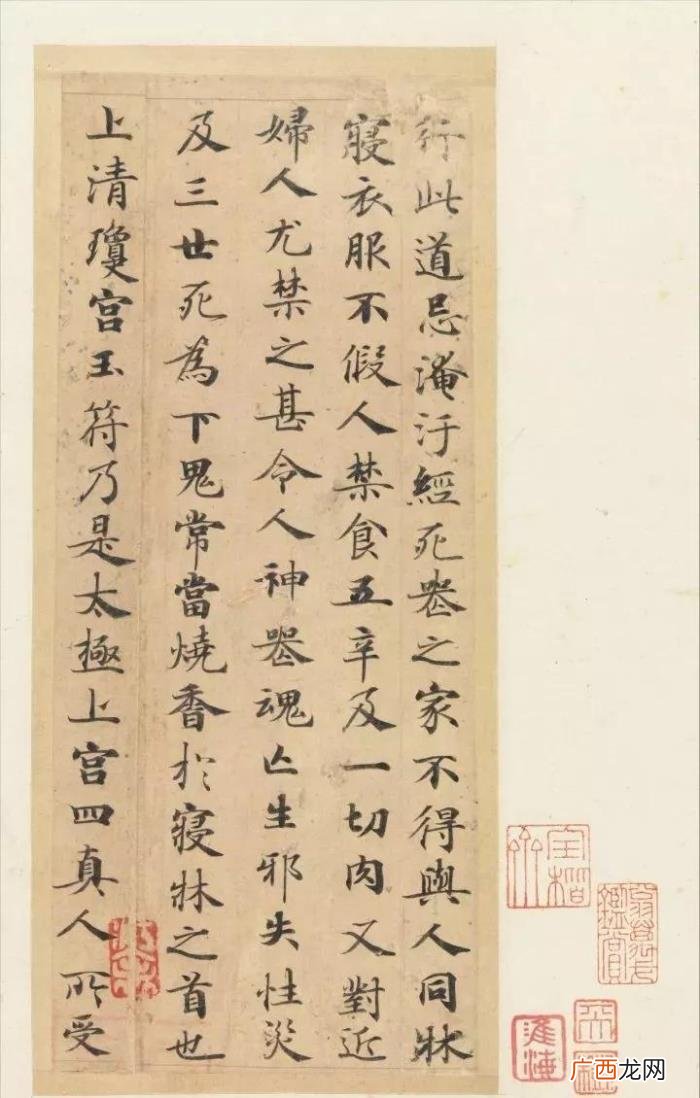 行此道忌淹汙經死喪之家不得與人同牀
寢衣服不假人禁食五辛及一切肉又對近
婦人尤禁之甚令人神喪魂亡生邪失性災
及三世死為下鬼常當燒香於寢牀之首也
上清瓊宮玉符乃是太極上宮四真人所受
廣西龙网